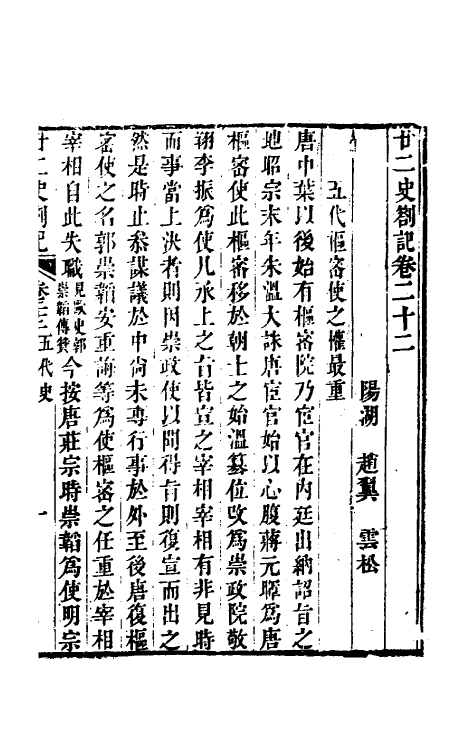 廿二史劄記卷二十二
陽湖 趙翼 雲松
五代樞密使之權最重
唐中葉以後始有樞密院乃宦官在內廷出納詔旨之
地昭宗末年朱溫大誅唐宦官始以心腹蔣元暉爲唐
樞密使此樞密移於朝士之始溫篡位改爲崇政院敬
翔李振爲使凡承上之旨皆宣之宰相宰相有非見時
而事當上決者則因崇政使以聞得旨則復宣而出之
然是時止參謀議於中尙未專行事於外至後唐復樞
密使之名郭崇韜安重誨等爲使樞密之任重於宰相
宰相自此失職見歐史郭崇韜傳贊今按唐莊宗時崇韜爲使明宗
廿二史劄記 卷二十二 五代史 一